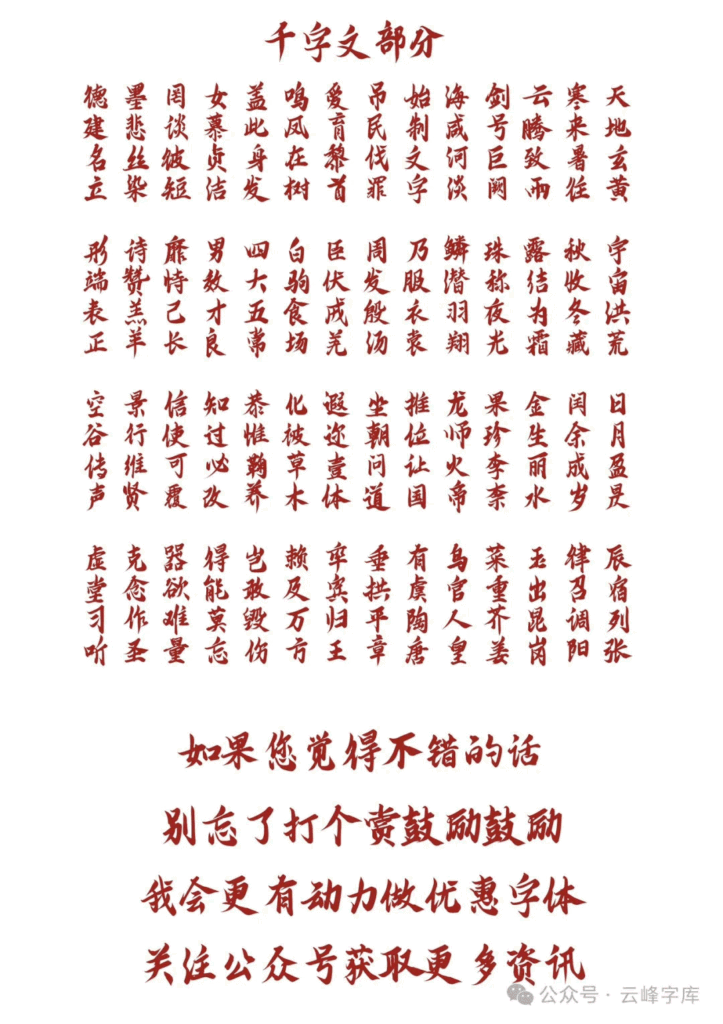 千字文部分
天地玄黄
宇宙洪荒
日月盈昃
辰宿列张
寒来暑往
秋收冬藏
闰余成岁
律召调阳
云腾致雨
露结为霜
金生丽水
玉出昆岗
剑号巨阙
珠称夜光
果珍李柰
菜重芥姜
海咸河淡
鳞潜羽翔
龙师火帝
鸟官人皇
始制文字
乃服衣裳
推位让国
有虞陶唐
吊民伐罪
周发殷汤
坐朝问道
垂拱平章
爱育黎首
臣伏戎羌
遐迩壹体
率宾归王
鸣凤在树
白驹食场
化被草木
赖及万方
盖此身发
四大五常
恭惟鞠养
岂敢毁伤
女慕贞洁
男效才良
知过必改
得能莫忘
罔谈彼短
靡恃己长
信使可覆
器欲难量
墨悲丝染
诗赞羔羊
景行维贤
克念作圣
德建名立
形端表正
空谷传声
虚堂习听
如果您觉得不错的话
别忘了打个赏鼓励鼓励
我会更有动力做优惠字体
关注公众号获取更多资讯
公众号·云峰字库